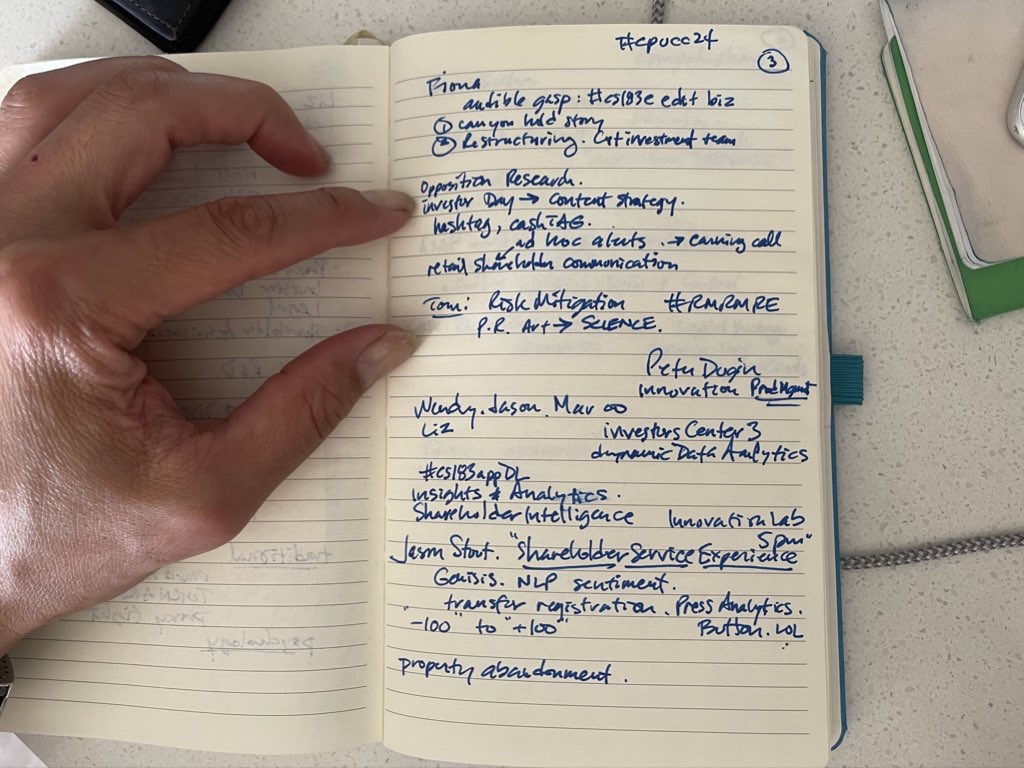 #cpucc24
3
Fiona
audible gasp: #cs183e edit biz
① can you hold story
② Restructuring. Cut investment team
Opposition Research.
investor Day → content strategy.
hashtag, cashTAG.
ad hoc alerts → earning call
retail shareholder communication
Tom: Risk Mitigation #RMRMRE
P.R. Art → SCIENCE.
Peter Dugin
innovation Prod Mgmt
Wendy. Jason. Mar ∞
Liz
investors Center 3
dynamic Data Analytics
#cs183appDL
insights & Analytics.
Shareholder Intelligence
Innovation Lab
5pm"
Jason Stout. "Shareholder Service Experience
NLP sentiment.
transfer registration. Press Analytics.
"-100" to "+100"
Button. LOL
property abandonment.
traditional
proxy fight
psychology